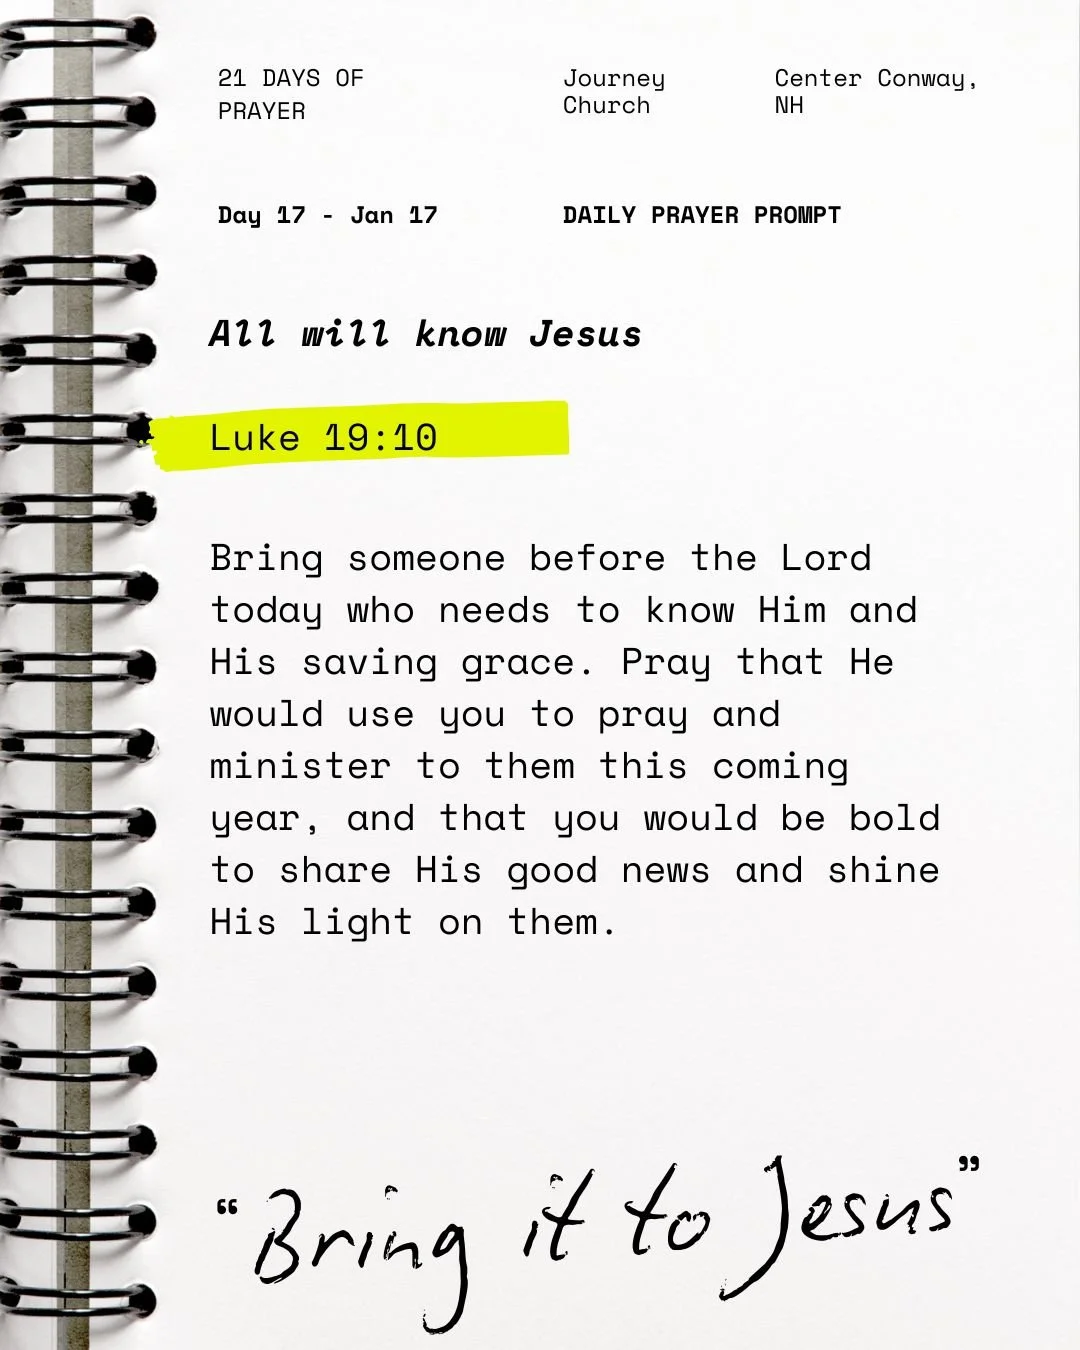 21 DAYS OF
PRAYER
Journey
Church
Center Conway,
NH
Day 17 - Jan 17
DAILY PRAYER PROMPT
All will know Jesus
Luke 19:10
Bring someone before the Lord
today who needs to know Him and
His saving grace. Pray that He
would use you to pray and
minister to them this coming
year, and that you would be bold
to share His good news and shine
His light on them.
“Bring it to Jesus”